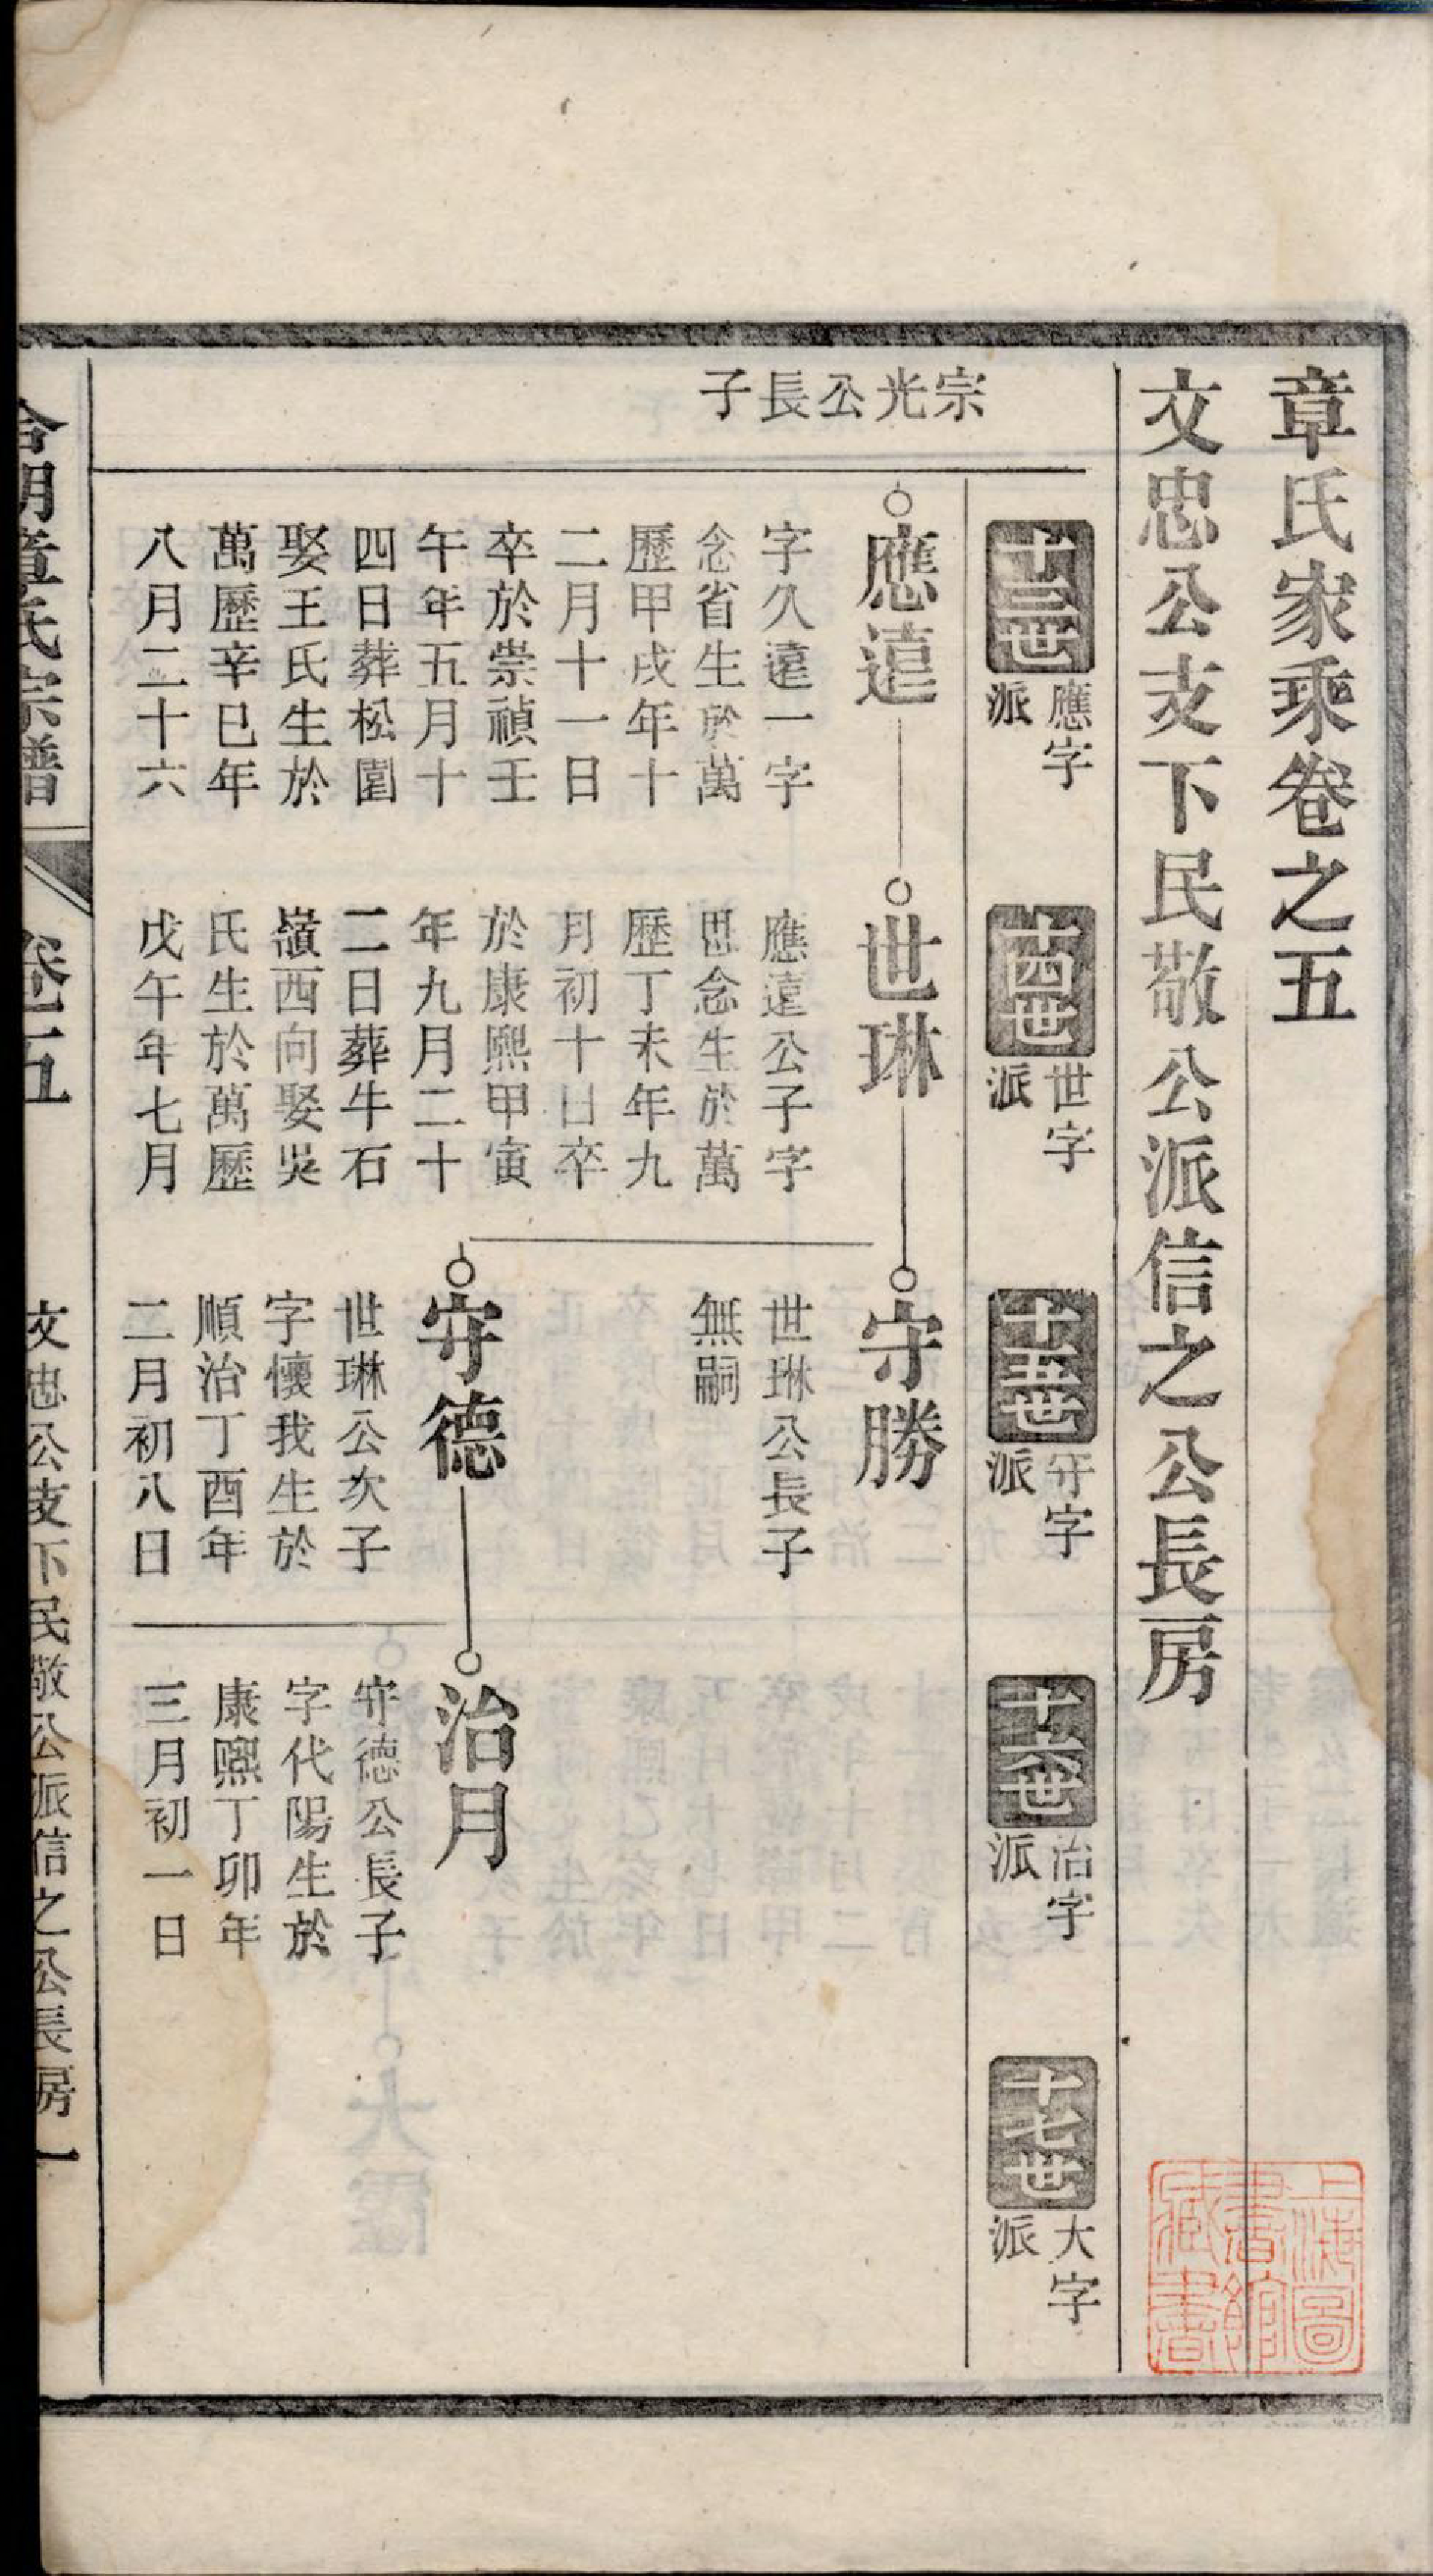 章氏家乘卷之五
文忠公支下民敬公派信之公長房
十三世
應字
派
十四世
世字
派
十五世
守字
派
十六世
治字
派
十七世
大字
派
宗光公長子
應遠
字久遠一字
念省生於萬
歷甲戌年十
二月十一日
卒於崇禎壬
午年五月十
四日葬松園
娶王氏生於
萬歷辛巳年
八月二十六
世琳
應遠公子字
思念生於萬
歷丁未年九
月初十日卒
於康熙甲寅
年九月二十
二日葬牛石
嶺西向娶吳
氏生於萬歷
戊午年七月
守勝
世琳公長子
無嗣
守德
世琳公次子
字懷我生於
順治丁酉年
二月初八日
治月
守德公長子
字代陽生於
康熙丁卯年
三月初一日
明章氏宗譜
卷五
文忠公支下民敬公派信之公長房
一
上海圖
書館
藏書